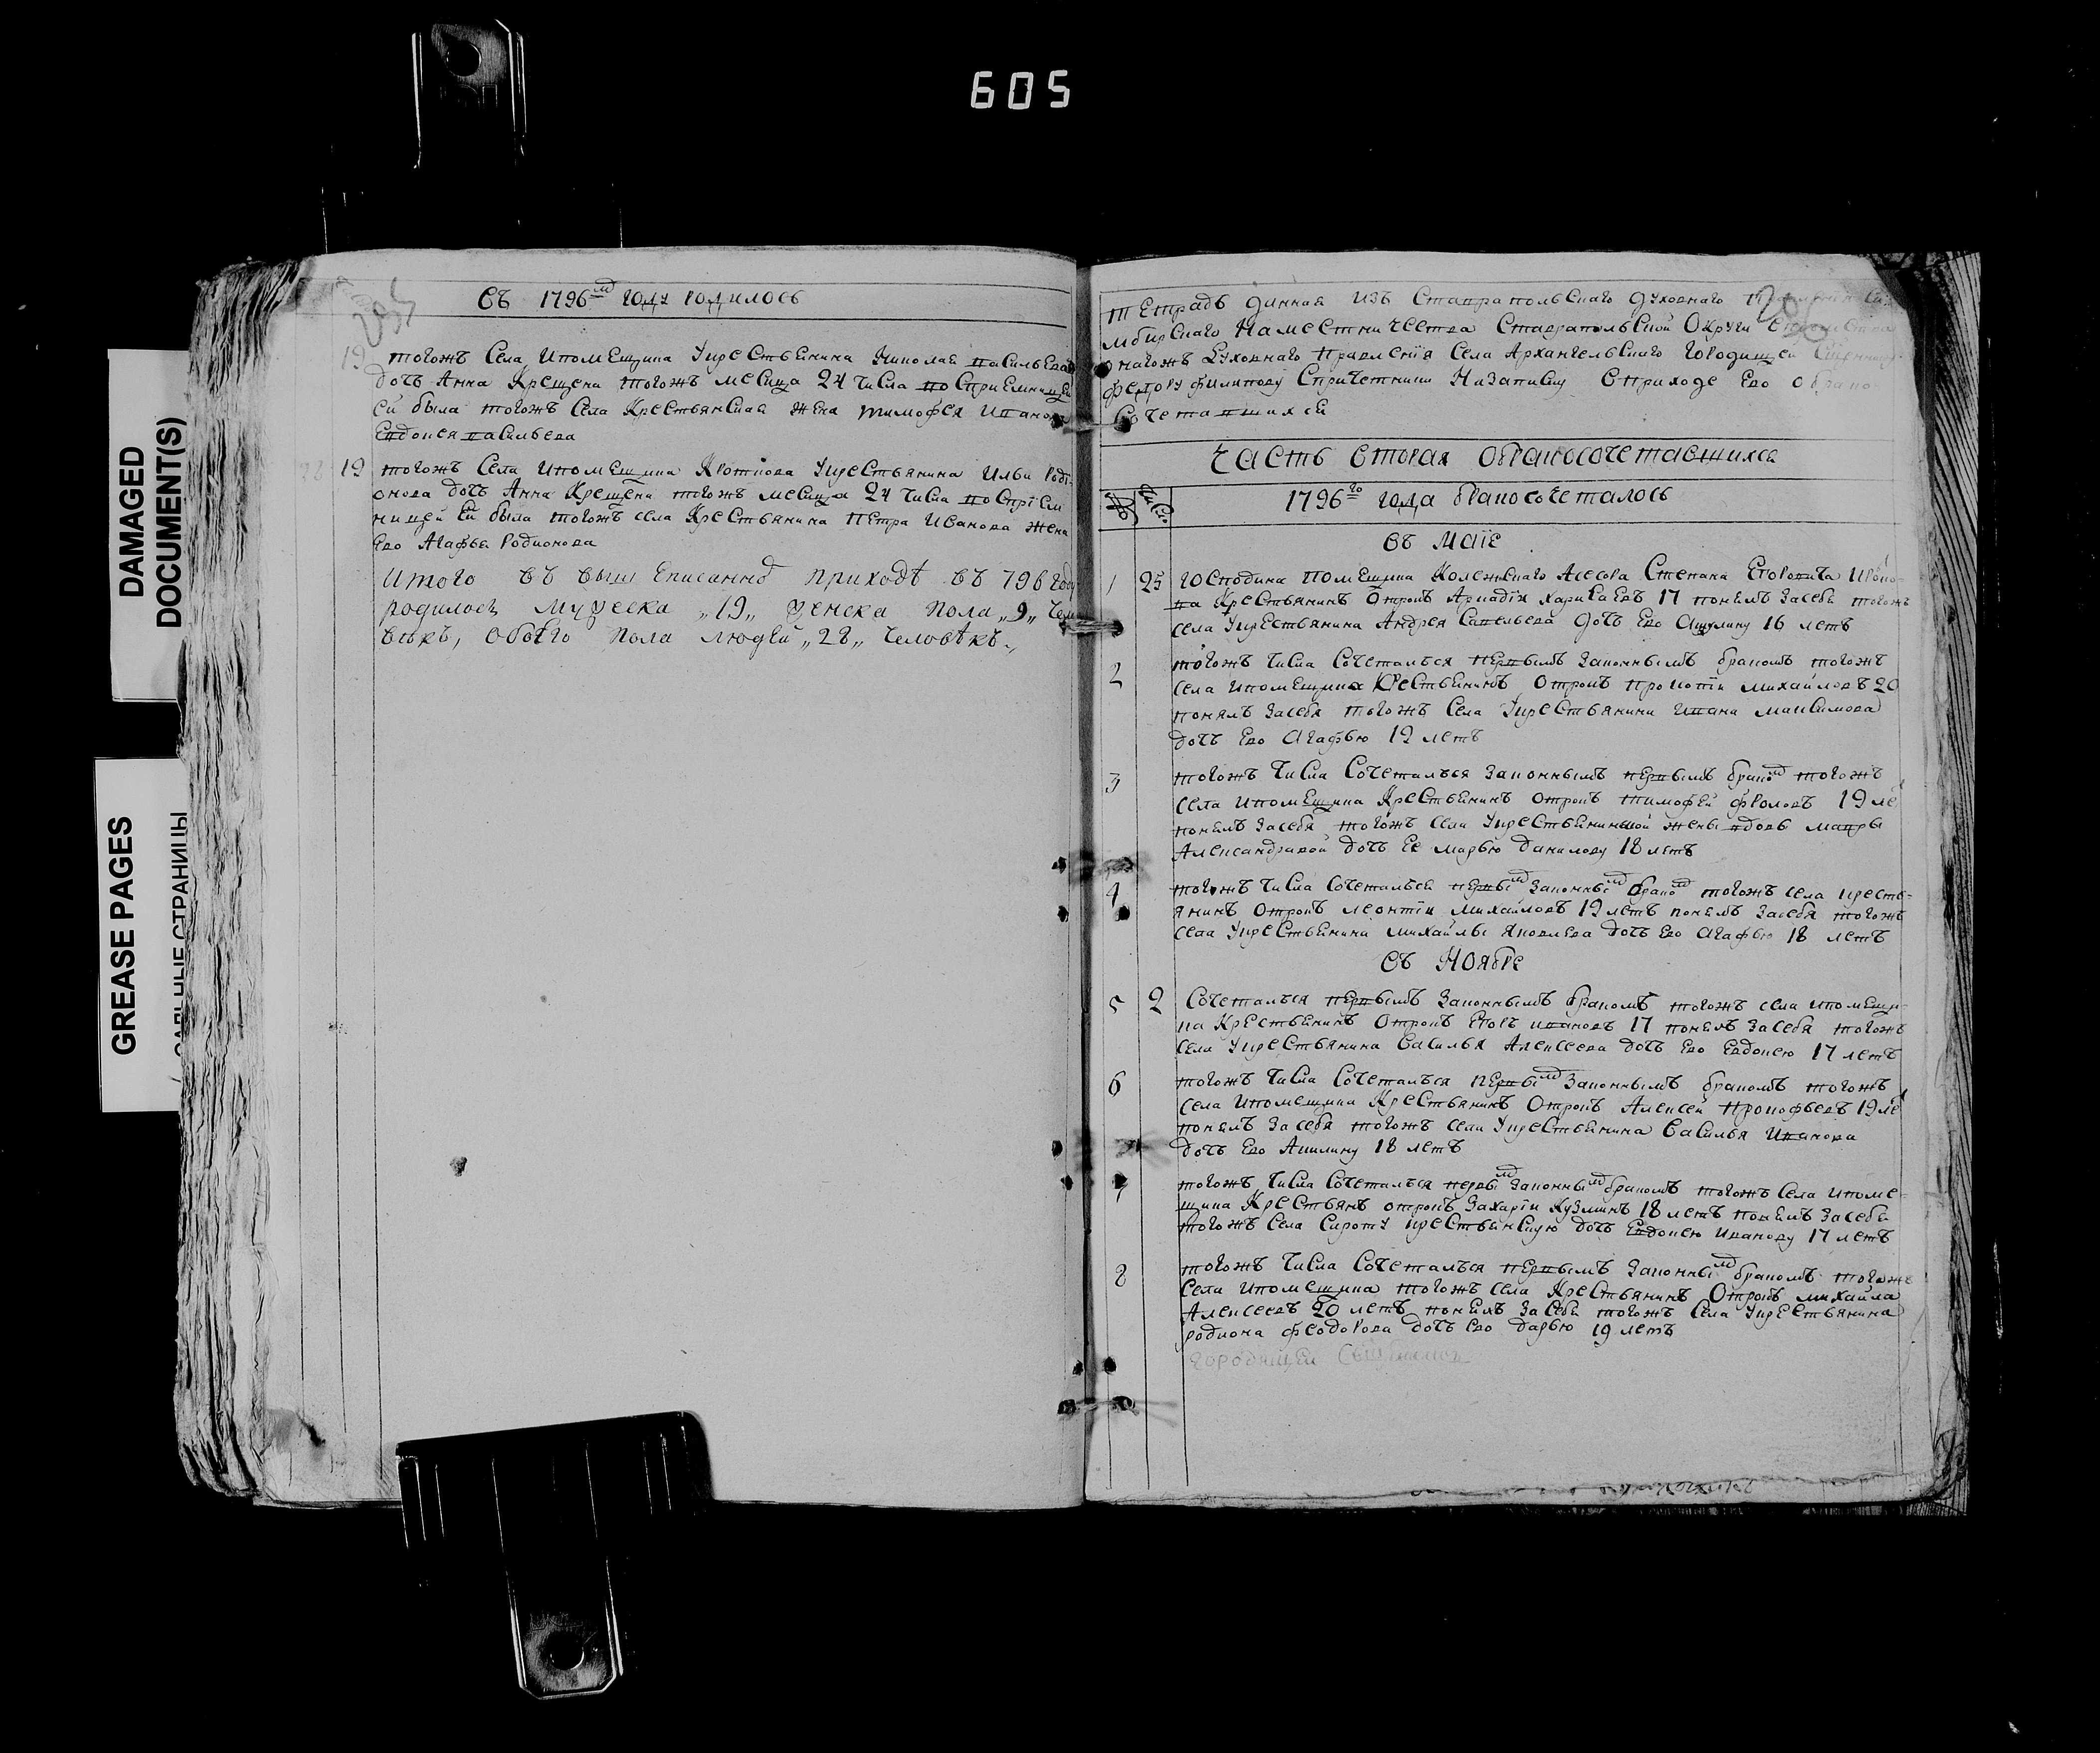 605
DAMAGED
DOCUMENT(S)
GREASE PAGES
САЛЬНЫЕ СТРАНИЦЫ
Въ 1796мъ году родилось
19 тогожъ села ипомещика укрестьянина Николая василева
дочь Анна крещена тогожъ месеца 24 числа восприемницей
ей была тогожъ села крестьянская жена тимофея иванова
Евдокея васильева
28 19 тогожъ села ипомещика Кроткова укрестьянина Ильи Роди
онова дочь Анна крещена тогожъ месеца 24 числа воспрiем
ницей ей была тогожъ села крестьянина петра иванова жена
Ево Агафья Родионова
Итого въ выш еписанномъ приходѣ въ 796 году
родилось мужеска „19„ женска пола „9„ чело
векъ, обоего пола людей „28„ человѣкъ.
тетрадь данная изъ Ставрапольскаго духовнаго
мбирскаго наместничества Ставрапольской Округи
онагожъ духовнаго правленiя села Архангельскаго городищей
федору филипову спричетники назаписку вприходе Ево обрако
сочетавшихся
Часть вторая обракосочетавшихся
1796го года бракосочеталось
Въ Маiе
1 25 господина помещика колежскаго асесора Степана Егоровича Крот
ка крестьянинъ отрокъ Аркадiи харикаевъ 17 понялъ засебя тогожъ
села укрестьянина Андрея савельева дочь Ево Акулину 16 летъ
2 тогожъ числа сочетался первымъ законнымъ бракомъ тогожъ
села ипомещика крестьянинъ отрокъ прокопiи михайловъ 20
понялъ засебя тогожъ села укрестьянина ивана максимова
дочь Ево Агафью 19 летъ
3 тогожъ числа сочетался законнымъ первымъ бракомъ тогожъ
села ипомещика крестьянинъ отрокъ тимофей фроловъ 19 ле
понялъ засебя тогожъ села укрестьянинской жены вдовы мавры
Александравой дочь Ее марью данилову 18 летъ
4 тогожъ числа сочетался первымъ законнымъ бракомъ тогожъ села кресть-
янинъ отрокъ леонтiи михайловъ 19 летъ понялъ засебя тогожъ
села укрестьянина михайлы яковлева дочь Ево Агафью 18 летъ
Въ Ноябре
5 2 Сочетался первымъ законнымъ бракомъ тогожъ села ипомещи-
ка крестьянинъ отрокъ Егоръ ивановъ 17 понялъ засебя тогожъ
села укрестьянина Василья Алексеева дочь Ево Евдокею 17 летъ
6 тогожъ числа сочетался первымъ законнымъ бракомъ тогожъ
села ипомещика крестьянинъ отрокъ Алексей прокофьевъ 19 ле
понялъ засебя тогожъ села укрестьянина Василья иванова
дочь Ево Акилину 18 летъ
7 тогожъ числа сочетался первымъ законнымъ бракомъ тогожъ села ипоме-
щика крестьянъ отрокъ Захарiи Кузминъ 18 летъ понялъ засебя
тогожъ села сироту крестьянскую дочь Евдокею иванову 17 летъ
8 тогожъ числа сочетался первымъ законнымъ бракомъ тогожъ
села ипомещика тогожъ села крестьянинъ отрокъ михайла
Алексеевъ 20 летъ понялъ засебя тогожъ села укрестьянина
родиона феодорова дочь ево дарью 19 летъ
городищей